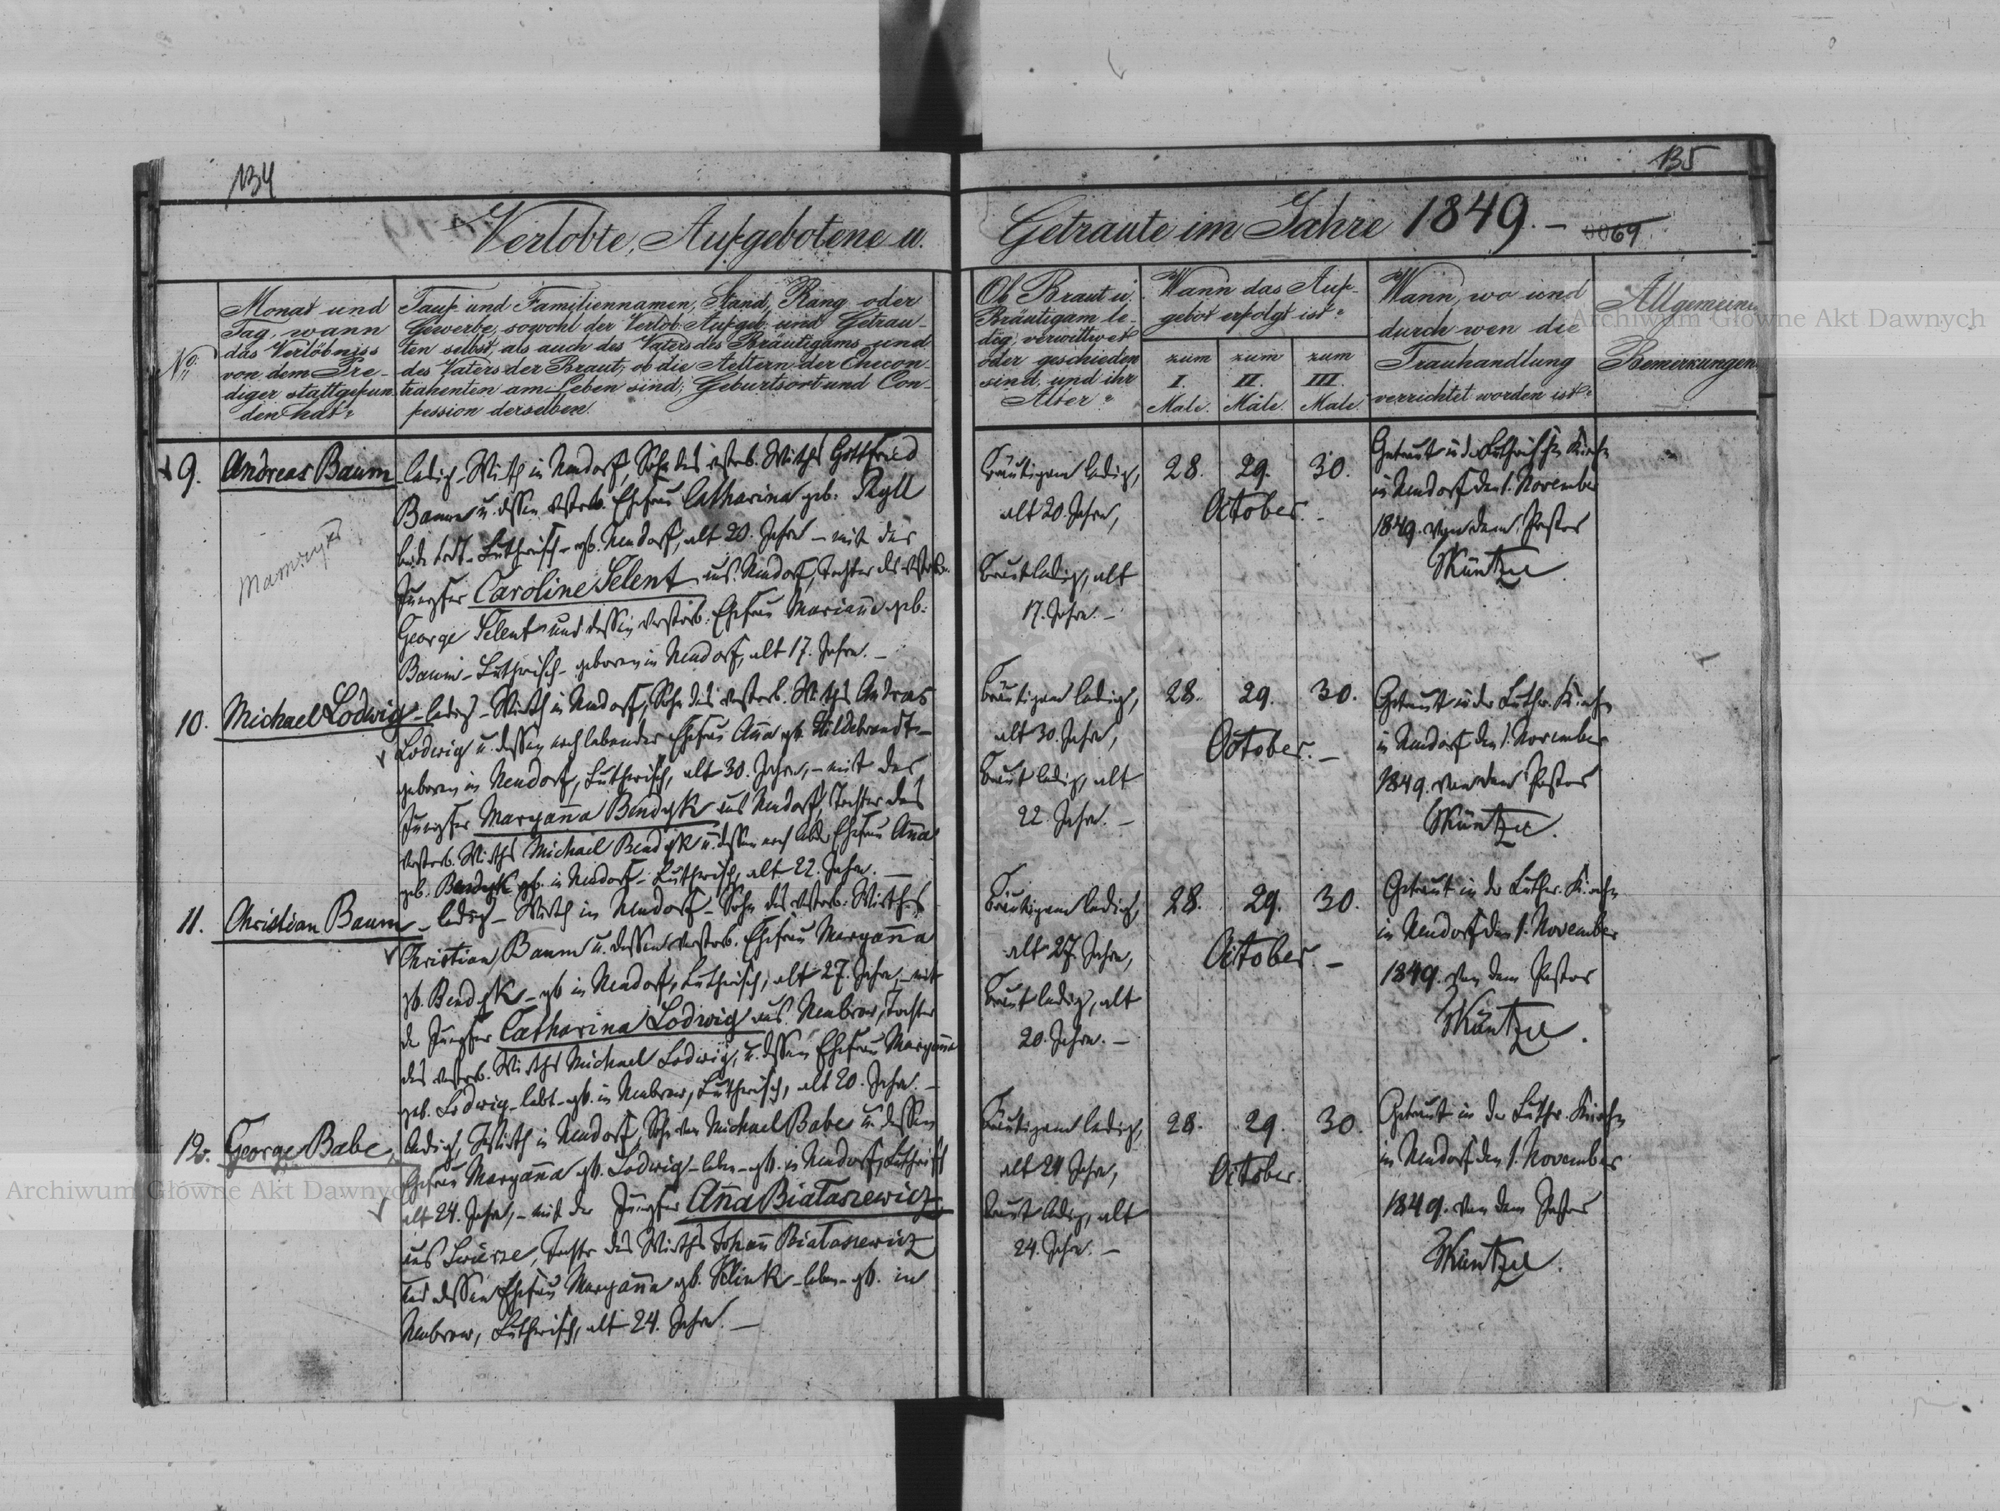 134
135
Verlobte, Aufgebotene u.
Getraute im Jahre 1849. –
69
No.
Monat und
Tag, wann
das Verlöbniss
von dem Pre-
diger stattgefun
den hat"
Tauf- und Familiennamen, Stand, Rang oder
Gewerbe, sowohl der Verlob. Aufgeb. und Getrau-
ten selbst, als auch des Vaters des Bräutigams und
des Vaters der Braut, ob die Aeltern der Ehecon-
trahenten am Leben sind, Geburtsort und Con-
fession derselben.
Ob Braut u.
Bräutigam le-
dig, verwittwet
oder geschieden
sind, und ihr
Alter"
Wann das Auf-
gebot erfolgt ist"
zum
I.
Male.
zum
II.
Male.
zum
III.
Male.
Wann, wo und
durch wen die
Trauhandlung
verrichtet worden ist"
Allgemeine
Bemerkungen
9. Andreas Baum
ledig - Wirth in Neudorf, Sohn des verstorb. Wirths Gottfried
Baum u. dessen verstorb. Ehefrau Catharina geb. Ryll
beide todt - Lutherisch - geb. Neudorf, alt 20. Jahre - mit der
Jungfer Caroline Selent aus Neudorf, Tochter des verstorb.
George Selent und dessen verstorb. Ehefrau Marianna geb:
Baum - Lutherisch - geboren in Neudorf, alt 17. Jahre. –
Bräutigam ledig,
alt 20 Jahre,
Braut ledig, alt
17. Jahre. –
28. 29. 30.
October. –
Getraut in der Lutherischen Kirche
in Neudorf den 1. November
1849. von dem Pastor
Küntzel
10. Michael Lodwig
- ledig - Wirth in Neudorf, Sohn des verstorb. Wirths Andreas
Lodwig u. dessen noch lebender Ehefrau Anna geb. Hildebrandt -
geboren in Neudorf, Lutherisch, alt 30. Jahre, - mit der
Jungfer Maryanna Bendyk aus Neudorf, Tochter des
verstorb. Wirths Michael Bendyk u. dessen noch lebd. Ehefrau Anna
geb. Bendyk geb. in Neudorf - Lutherisch, alt 22. Jahre. –
Bräutigam ledig,
alt 30. Jahre,
Braut ledig, alt
22. Jahre. –
28. 29. 30.
October. –
Getraut in der Luther. Kirche
in Neudorf den 1. November
1849. von dem Pastor
Küntzel.
11. Christian Baum
- ledig - Wirth in Neudorf - Sohn des verstorb. Wirths
Christian Baum u. dessen verstorb. Ehefrau Maryanna
geb. Bendyk - geb in Neudorf, Lutherisch, alt 27. Jahre - mit
der Jungfer Catharina Lodwig aus Neubrow, Tochter
des verstorb. Wirths Michael Lodwig, u. dessen Ehefrau Maryanna
geb. Lodwig - lebt - geb. in Neubrow, Lutherisch, alt 20. Jahre. –
Bräutigam ledig,
alt 27. Jahre,
Braut ledig, alt
20. Jahre. –
28. 29. 30.
October. –
Getraut in der Luther. Kirche
in Neudorf den 1. November
1849. von dem Pastor
Küntzel.
12. George Babe,
ledig, Wirth in Neudorf, Sohn von Michael Babe u. dessen
Ehefrau Maryanna geb. Lodwig - leben - geb. in Neudorf, Lutherisch
alt 24. Jahre, - mit der Jungfer Anna Białasiewicz
aus, Tochter des Wirths Johann Białasiewicz
und dessen Ehefrau Maryanna geb. Selink - leben - geb. in
Neubrow, Lutherisch, alt 24. Jahre. –
Bräutigam ledig,
alt 24 Jahre,
Braut ledig, alt
24. Jahre. –
28. 29. 30.
October.
Getraut in der Luthr. Kirche
in Neudorf den 1. November
1849. von dem Pastor
Küntzel.
Archiwum Główne Akt Dawnych
Archiwum Główne Akt Dawnych